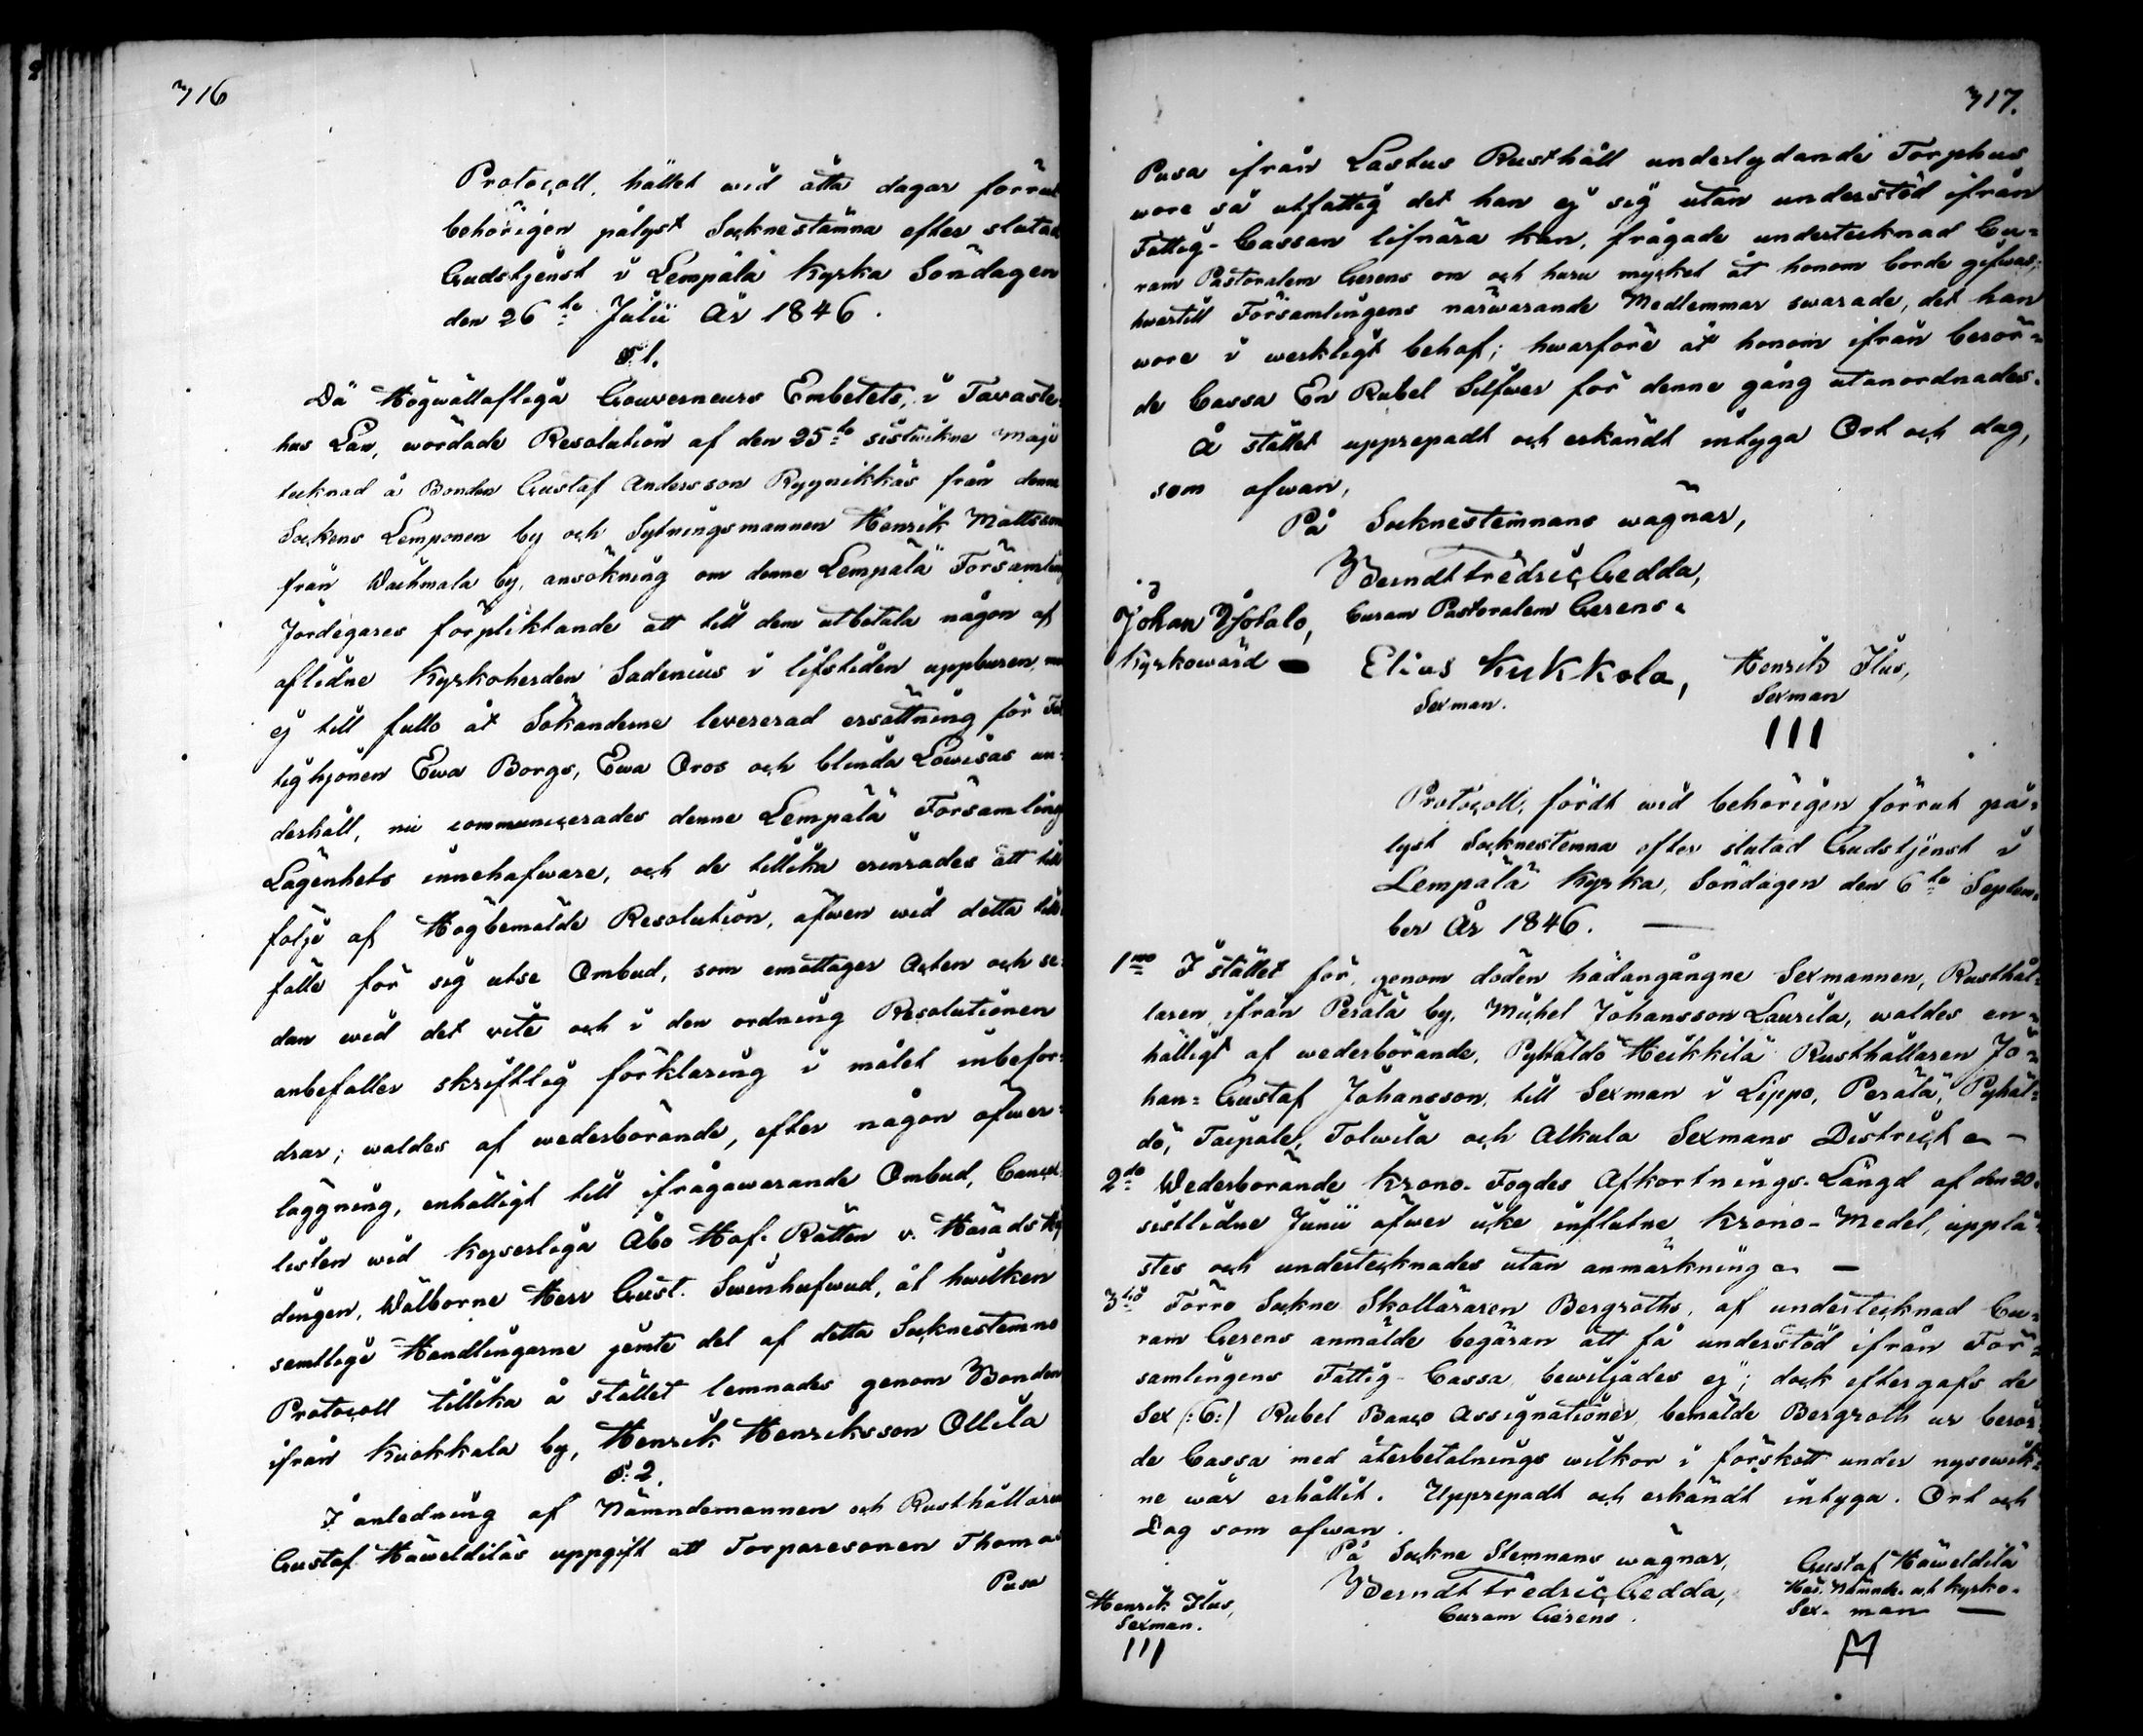 316
Protocoll, hållet wid åtta dagar förrut
behörigen pålyst Socknestämna efter slutad
Gudstjenst i Lempälä Kyrka Söndagen
den 26te Julii År 1846.
§. 1.
Då Högwällofliga Gouverneurs Embetets, i Tavaste-
hus Län, wördade Resolution af den 25te sistwikne Maji
tecknad å Bonden Gustaf Andersson Ryynikkäs från denne
Sockens Lemponen by och Sytningsmannen Henrik Mattsson
från Waihmala by, ansökning om denne Lempälä Församlings
Jordegares förpliktande att till dem utbetala någon af
aflidne Kyrkoherden Sadenius i lifstiden uppburen, men
ej till fullo åt Sökanderne levererad ersättning för Fat-
tighjonen Ewa Borgs, Ewa Oros och blinda Lowisas un-
derhåll, nu communicerades denne Lempälä Församlings
Lägenhets innehafware, och de tillika erinrades att till
följe af Högbemälde Resolution, äfwen wid detta till-
fälle för sig utse Ombud, som emottager Acten och se-
dan wid det vite och i den ordning Resolutionen
anbefaller skriftlig förklaring i målet inbefor-
drar; waldes af wederbörande, efter någon öfwer-
läggning, enhälligt till ifrågawarande Ombud, Cancel-
listen wid Kejserliga Åbo Hof-Rätten v. Häradshöf-
dingen, Wälborne Herr Gust. Swinhufwud, åt hwilken
samtlige Handlingarne jemte del af detta Socknestemno
Protocoll tillika å stället lemnades genom Bonden
ifrån Kuokkala by, Henrik Henriksson Ollila
§. 2.
I anledning af Nämndemannen och Rusthållaren
Gustaf Häweldiläs uppgift att Torparesonen Thomas
Pusa
317.
Pusa ifrån Lastus Rusthåll underlydande Torphus
wore så utfattig det han ej sig utan understöd ifrån
Fattig-Cassan lifnära kan, frågade undertecknad Cu-
ram Pastoralem Gerens om och huru mycket åt honom borde gifwas;
hwartill Församlingens närwarande Medlemmar swarade, det han
wore i werkligt behof; hwarföre åt honom ifrån berör-
de Cassa En Rubel Silfwer för denne gång utanordnades.
Å stället upprepadt och erkändt intyga Ort och dag,
som ofwan,
På Socknestemnans wägnar,
Berndt Fredric Gedda,
Curam Pastoralem Gerens.
Johan Yotalo,
Kyrkowärd
Elias Kukkola,
Sexman.
Henrik Ilus,
Sexman
III
Protocoll, fördt wid behörigen förrut på-
lyst Socknestemna efter slutad Gudstjenst i
Lempälä Kyrka, Söndagen den 6te Septem-
ber År 1846. —
1mo I stället för, genom döden hädangångne Sexmannen, Rusthål-
laren ifrån Perälä by, Michel Johansson Laurila, waldes en-
hälligt af wederbörande, Pyhäldö Heikkilä Rusthållaren Jo-
han Gustaf Johansson, till Sexman i Lippo, Perälä, Pyhäl-
dö, Taipale, Tolwila och Alkula Sexmans District. —
2do Wederbörande Krono-Fogdes Afkortnings-Längd af den 20
sistlidne Junii öfwer icke influtne Krono-Medel, upplä-
stes och undertecknades utan anmärkning. —
3tio Förre Sockne Skolläraren Bergroths, af undertecknad Cu-
ram Gerens anmälde begäran att få understöd ifrån För-
samlingens Fattig-Cassa, bewiljades ej; dock eftergafs de
Sex (:6:) Rubel Banco Assignationer, bemälde Bergroth ur berör-
de Cassa med återbetalnings wilkor i förskott under nysswik-
ne wår erhållit. Upprepadt och erkändt intyga. Ort och
Dag som ofwan.
På Sockne Stemnans wägnar,
Berndt Fredric Gedda,
Curam Gerens.
Henrik Ilus,
Sexman.
III
Gustaf Häweldilä
Här. Nämnde- och Kyrko-
Sex-man —